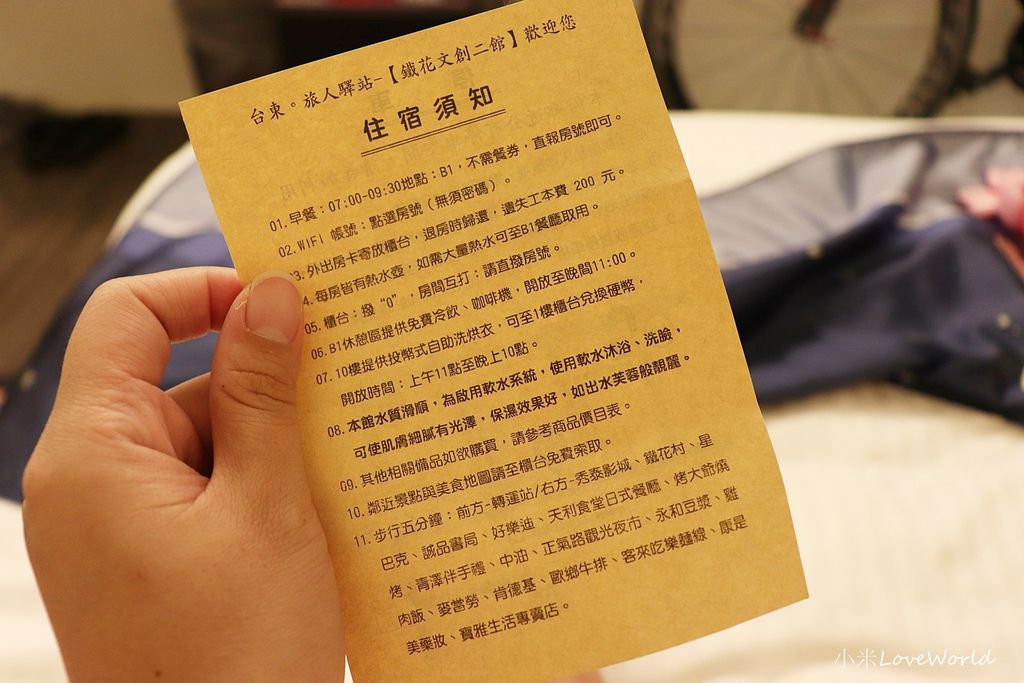 台東。旅人驛站-【鐵花文創二館】歡迎您
住宿須知
01.早餐：07:00-09:30地點：B1，不需餐券，直報房號即可。
02.WIFI 帳號：點選房號（無須密碼）。
3.外出房卡寄放櫃台，退房時歸還，遺失工本費 200 元。
4.每房皆有熱水壺，如需大量熱水可至B1餐廳取用。
05.櫃台：撥“0”，房間互打：請直撥房號。
06.B1休憩區提供免費冷飲、咖啡機，開放至晚間11:00。
07.10樓提供投幣式自助洗烘衣，可至1樓櫃台兌換硬幣，
開放時間：上午11點至晚上10點。
08.本館水質滑順，為啟用軟水系統，使用軟水沐浴、洗臉，
可使肌膚細膩有光澤，保濕效果好，如出水芙蓉般靚麗。
09.其他相關備品如欲購買，請參考商品價目表。
10.鄰近景點與美食地圖請至櫃台免費索取。
11.步行五分鐘：前方-轉運站/右方-秀泰影城、鐵花村、星
巴克、誠品書局、好樂迪、天利食堂日式餐廳、烤大爺燒
烤、青澤伴手禮、中油、正氣路觀光夜市、永和豆漿、雞
肉飯、麥當勞、肯德基、歐鄉牛排、客來吃樂麵線、康是
美藥妝、寶雅生活專賣店。
小米LoveWorld